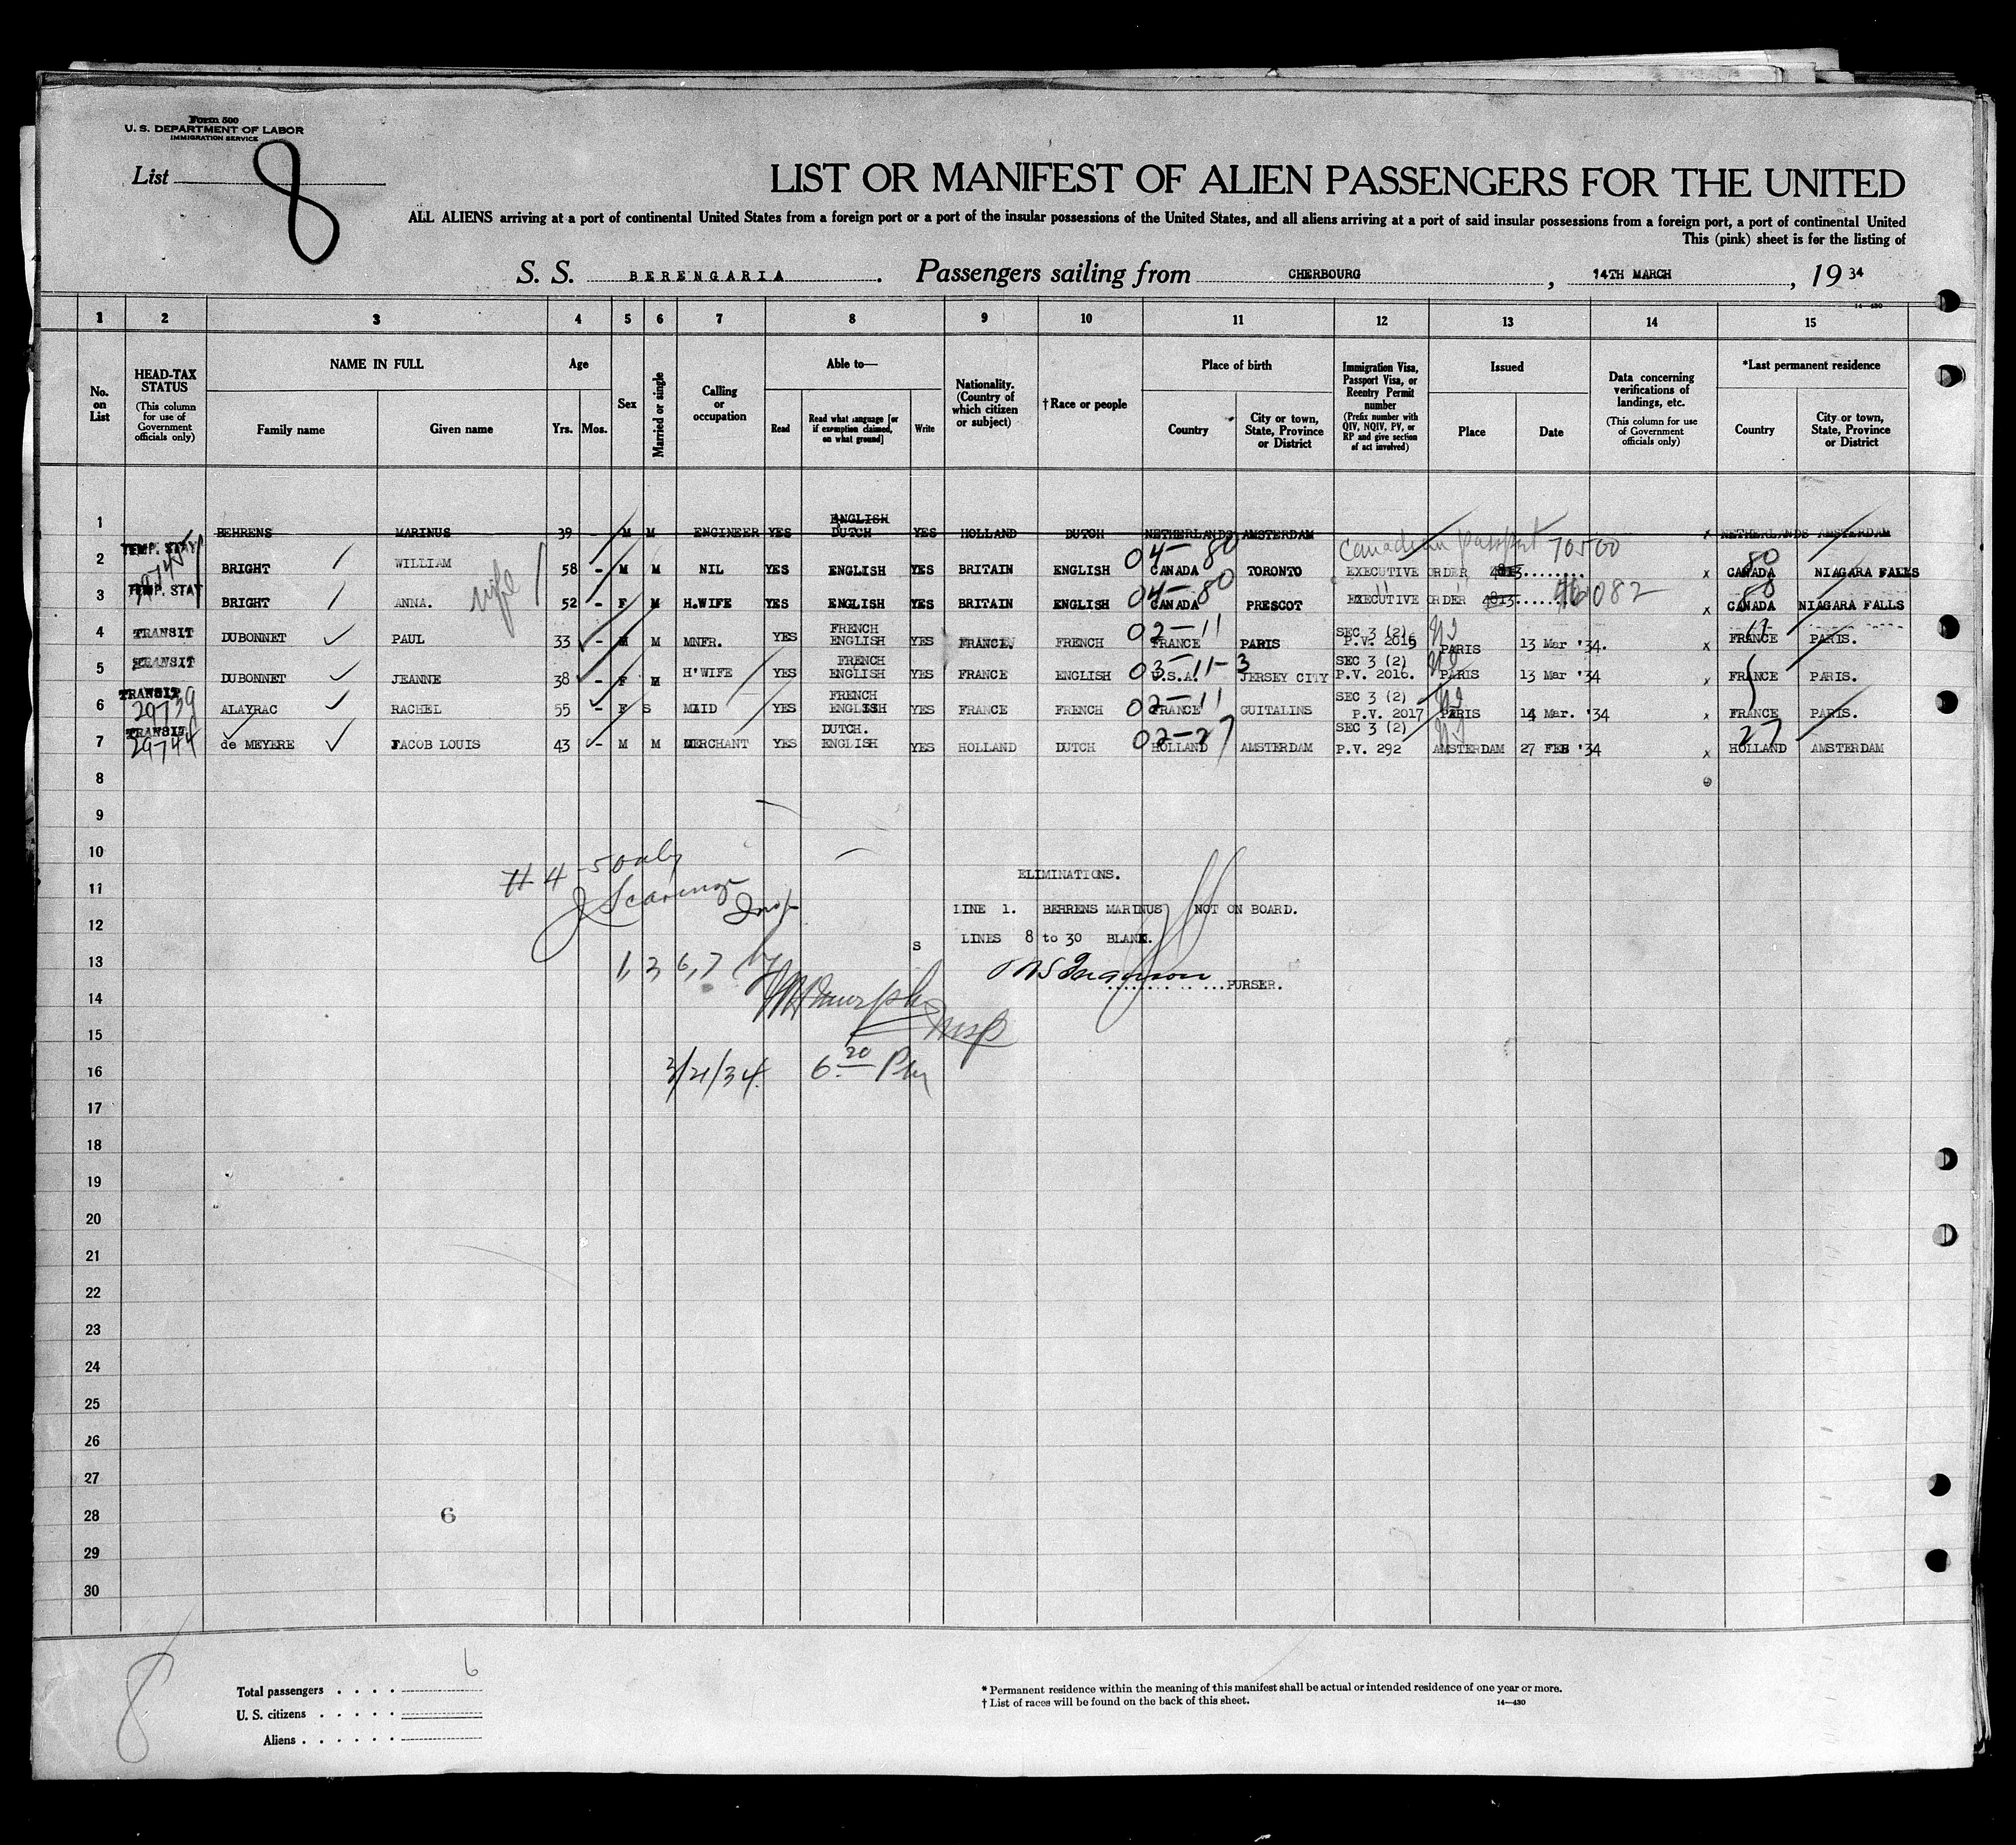 Form 500
U. S. DEPARTMENT OF LABOR
IMMIGRATION SERVICE
List 8
LIST OR MANIFEST OF ALIEN PASSENGERS FOR THE UNITED
ALL ALIENS arriving at a port of continental United States from a foreign port or a port of the insular possessions of the United States, and all aliens arriving at a port of said insular possessions from a foreign port, a port of continental United
This (pink) sheet is for the listing of
S. S. BERENGARIA. Passengers sailing from CHERBOURG, 14TH MARCH, 19 34
14—430
1 2 3 4 5 6 7 8 9 10 11 12 13 14 15
No. on List
HEAD-TAX STATUS
(This column for use of Government officials only)
NAME IN FULL
Family name
Given name
Age
Yrs. Mos.
Sex
Married or single
Calling or occupation
Able to—
Read
Read what language [or if exemption claimed, on what ground]
Write
Nationality. (Country of which citizen or subject)
† Race or people
Place of birth
Country
City or town, State, Province or District
Immigration Visa, Passport Visa, or Reentry Permit number
(Prefix number with QIV, NQIV, PV, or RP and give section of act involved)
Issued
Place
Date
Data concerning verifications of landings, etc.
(This column for use of Government officials only)
*Last permanent residence
Country
City or town, State, Province or District
ENGLISH
1 BEHRENS MARINUS 39 - M M ENGINEER YES DUTCH YES HOLLAND DUTCH NETHERLANDS AMSTERDAM x NETHERLANDS AMSTERDAM
TEMP. STAY 04-80 Canadian passport 70500 80
2 BRIGHT WILLIAM 58 - M M NIL YES ENGLISH YES BRITAIN ENGLISH CANADA TORONTO EXECUTIVE ORDER 4813........ x CANADA NIAGARA FALLS
TEMP. STAY wife 04-80 " " 46082 80
3 BRIGHT ANNA. 52 - F M H.WIFE YES ENGLISH YES BRITAIN ENGLISH CANADA PRESCOT EXECUTIVE ORDER 4813 x CANADA NIAGARA FALLS
TRANSIT FRENCH 02-11 SEC 3 (2) NY 11
4 DUBONNET PAUL 33 - M M MNFR. YES ENGLISH YES FRANCE. FRENCH FRANCE PARIS P.V. 2016 PARIS 13 Mar '34. x FRANCE PARIS.
TRANSIT FRENCH 03-11-3 SEC 3 (2) NY
5 DUBONNET JEANNE 38 - F M H'WIFE YES ENGLISH YES FRANCE ENGLISH U.S.A. JERSEY CITY P.V. 2016. PARIS 13 Mar '34 x FRANCE PARIS.
TRANSIT 29739 FRENCH 02-11 SEC 3 (2) NY
6 ALAYRAC RACHEL 55 - F S MAID YES ENGLISH YES FRANCE FRENCH FRANCE GUITALINS P.V. 2017 PARIS 14 Mar. '34 x FRANCE PARIS.
TRANSIT 29744 DUTCH. 02-27 SEC 3 (2) NY 27
7 de MEYERE JACOB LOUIS 43 - M M MERCHANT YES ENGLISH YES HOLLAND DUTCH HOLLAND AMSTERDAM P.V. 292 AMSTERDAM 27 FEB '34 x HOLLAND AMSTERDAM
8
9
10
11
12
13
14
15
16
17
18
19
20
21
22
23
24
25
26
27
28
29
30
# 4-5 only
J Scaringe
Insp
ELIMINATIONS.
LINE 1. BEHRENS MARINUS NOT ON BOARD.
S LINES 8 to 30 BLANK.
PURSER.
1, 3 6, 7 by
Murphy
Insp
3/21/34. 6 20 Pm
6
8
Total passengers . . . . 6
U. S. citizens . . . . .
Aliens . . . . . .
* Permanent residence within the meaning of this manifest shall be actual or intended residence of one year or more.
† List of races will be found on the back of this sheet.
14—430